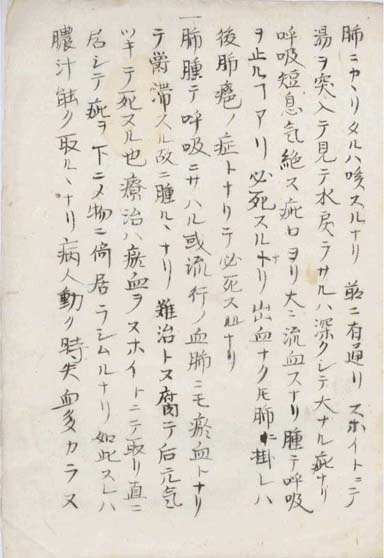 肺ニカヽリタルハ咳スルナリ 前ニ有通リ スホイトニテ
湯ヲ突入テ見テ水戻ラサルハ深クシテ大ナル疵ナリ
呼吸短息気絶ス疵口ヨリ大ニ流血スナリ腫テ呼吸
ヲ止ルヿアリ必死スルナリ 出血ナクモ肺ニ掛レハ
後肺癰ノ症トナリテ必死スルナリ
一肺腫テ呼吸ニサハル或流行ノ血肺ニモ瘀血トナリ
テ欝滞スル故ニ腫ルヽナリ 難治トス腐テ后元気
ツキテ死スル也療治ハ瘀血ヲスホイトニテ取リ直ニ
居シテ疵ヲ下ニメ物ニ倚居ラシムルナリ如此スレハ
膿汁能ク取ルヽナリ病人動ク時失血多カラヌ